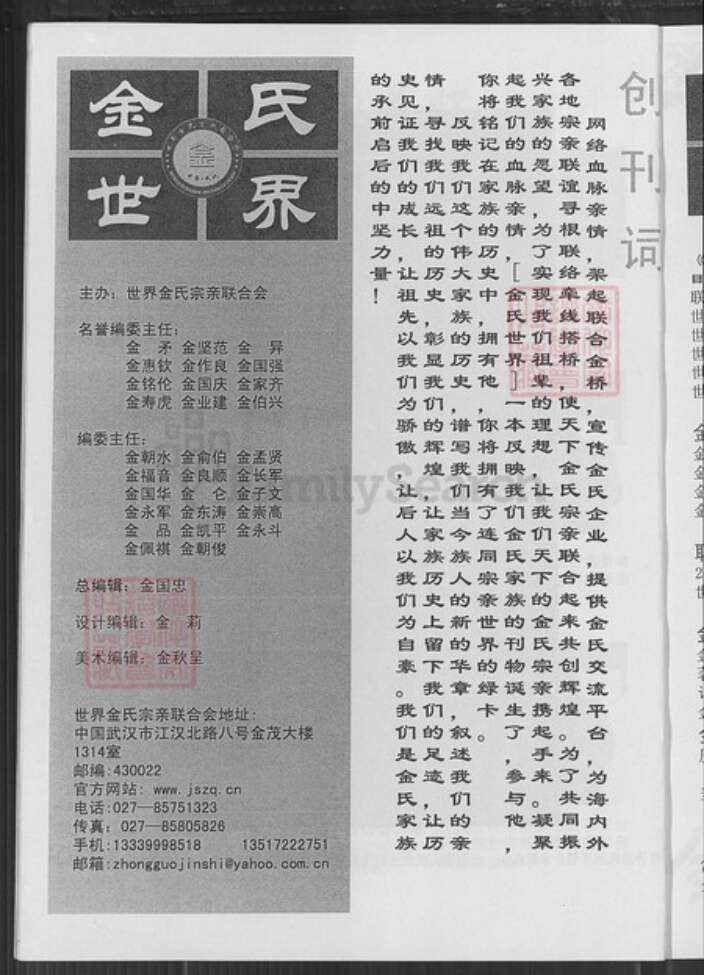 金氏
世界
主办：世界金氏宗亲联合会
名誉编委主任：
金　矛　金坚范　金　异
金惠钦　金作良　金国强
金铭伦　金国庆　金家齐
金寿虎　金业建　金伯兴
编委主任：
金朝水　金俞伯　金孟贤
金福音　金良顺　金长军
金国华　金　仑　金子文
金永军　金东涛　金崇高
金　品　金凯平　金永斗
金佩祺　金朝俊
总编辑：金国忠
设计编辑：金　莉
美术编辑：金秋呈
世界金氏宗亲联合会地址：
中国武汉市江汉北路八号金茂大楼
1314室
邮编:430022
官方网站：www.jszq.cn
电话:027—85751323
传真：027—85805826
手机:13339998518　　13517222751
邮箱:zhongguojinshi@yahoo.com.cn
创刊词
网络血脉亲情，架起联合金桥，宣传金氏企业，提供金氏交流平台，为海内外
各地宗亲联谊寻根，联络牵线搭桥，使天下金氏宗亲联合起来共创辉煌，为了共同振
兴家族的愿望，为了实现我们祖辈的理想，让我们天下的金氏宗亲携起手来。凝聚
起我们的血脉亲情[金氏世界]一本反映我们金氏家族的刊物诞生了，参与他，
你将铭记在家族的历史中，拥有他，你将拥有了连同宗亲世界的绿卡。
反映我们这个伟大家族的历史，谱写我们当今族人的新华章，叙述我们的亲
情，寻找我们远祖的历史，彰显我们的辉煌，让家族历史上留下我们的足迹，让历
史见证我们成长，让祖先以我们为骄傲，让后人以我们为自豪。我们是金氏家族
的承前启后的中坚力量！
FamilySearch